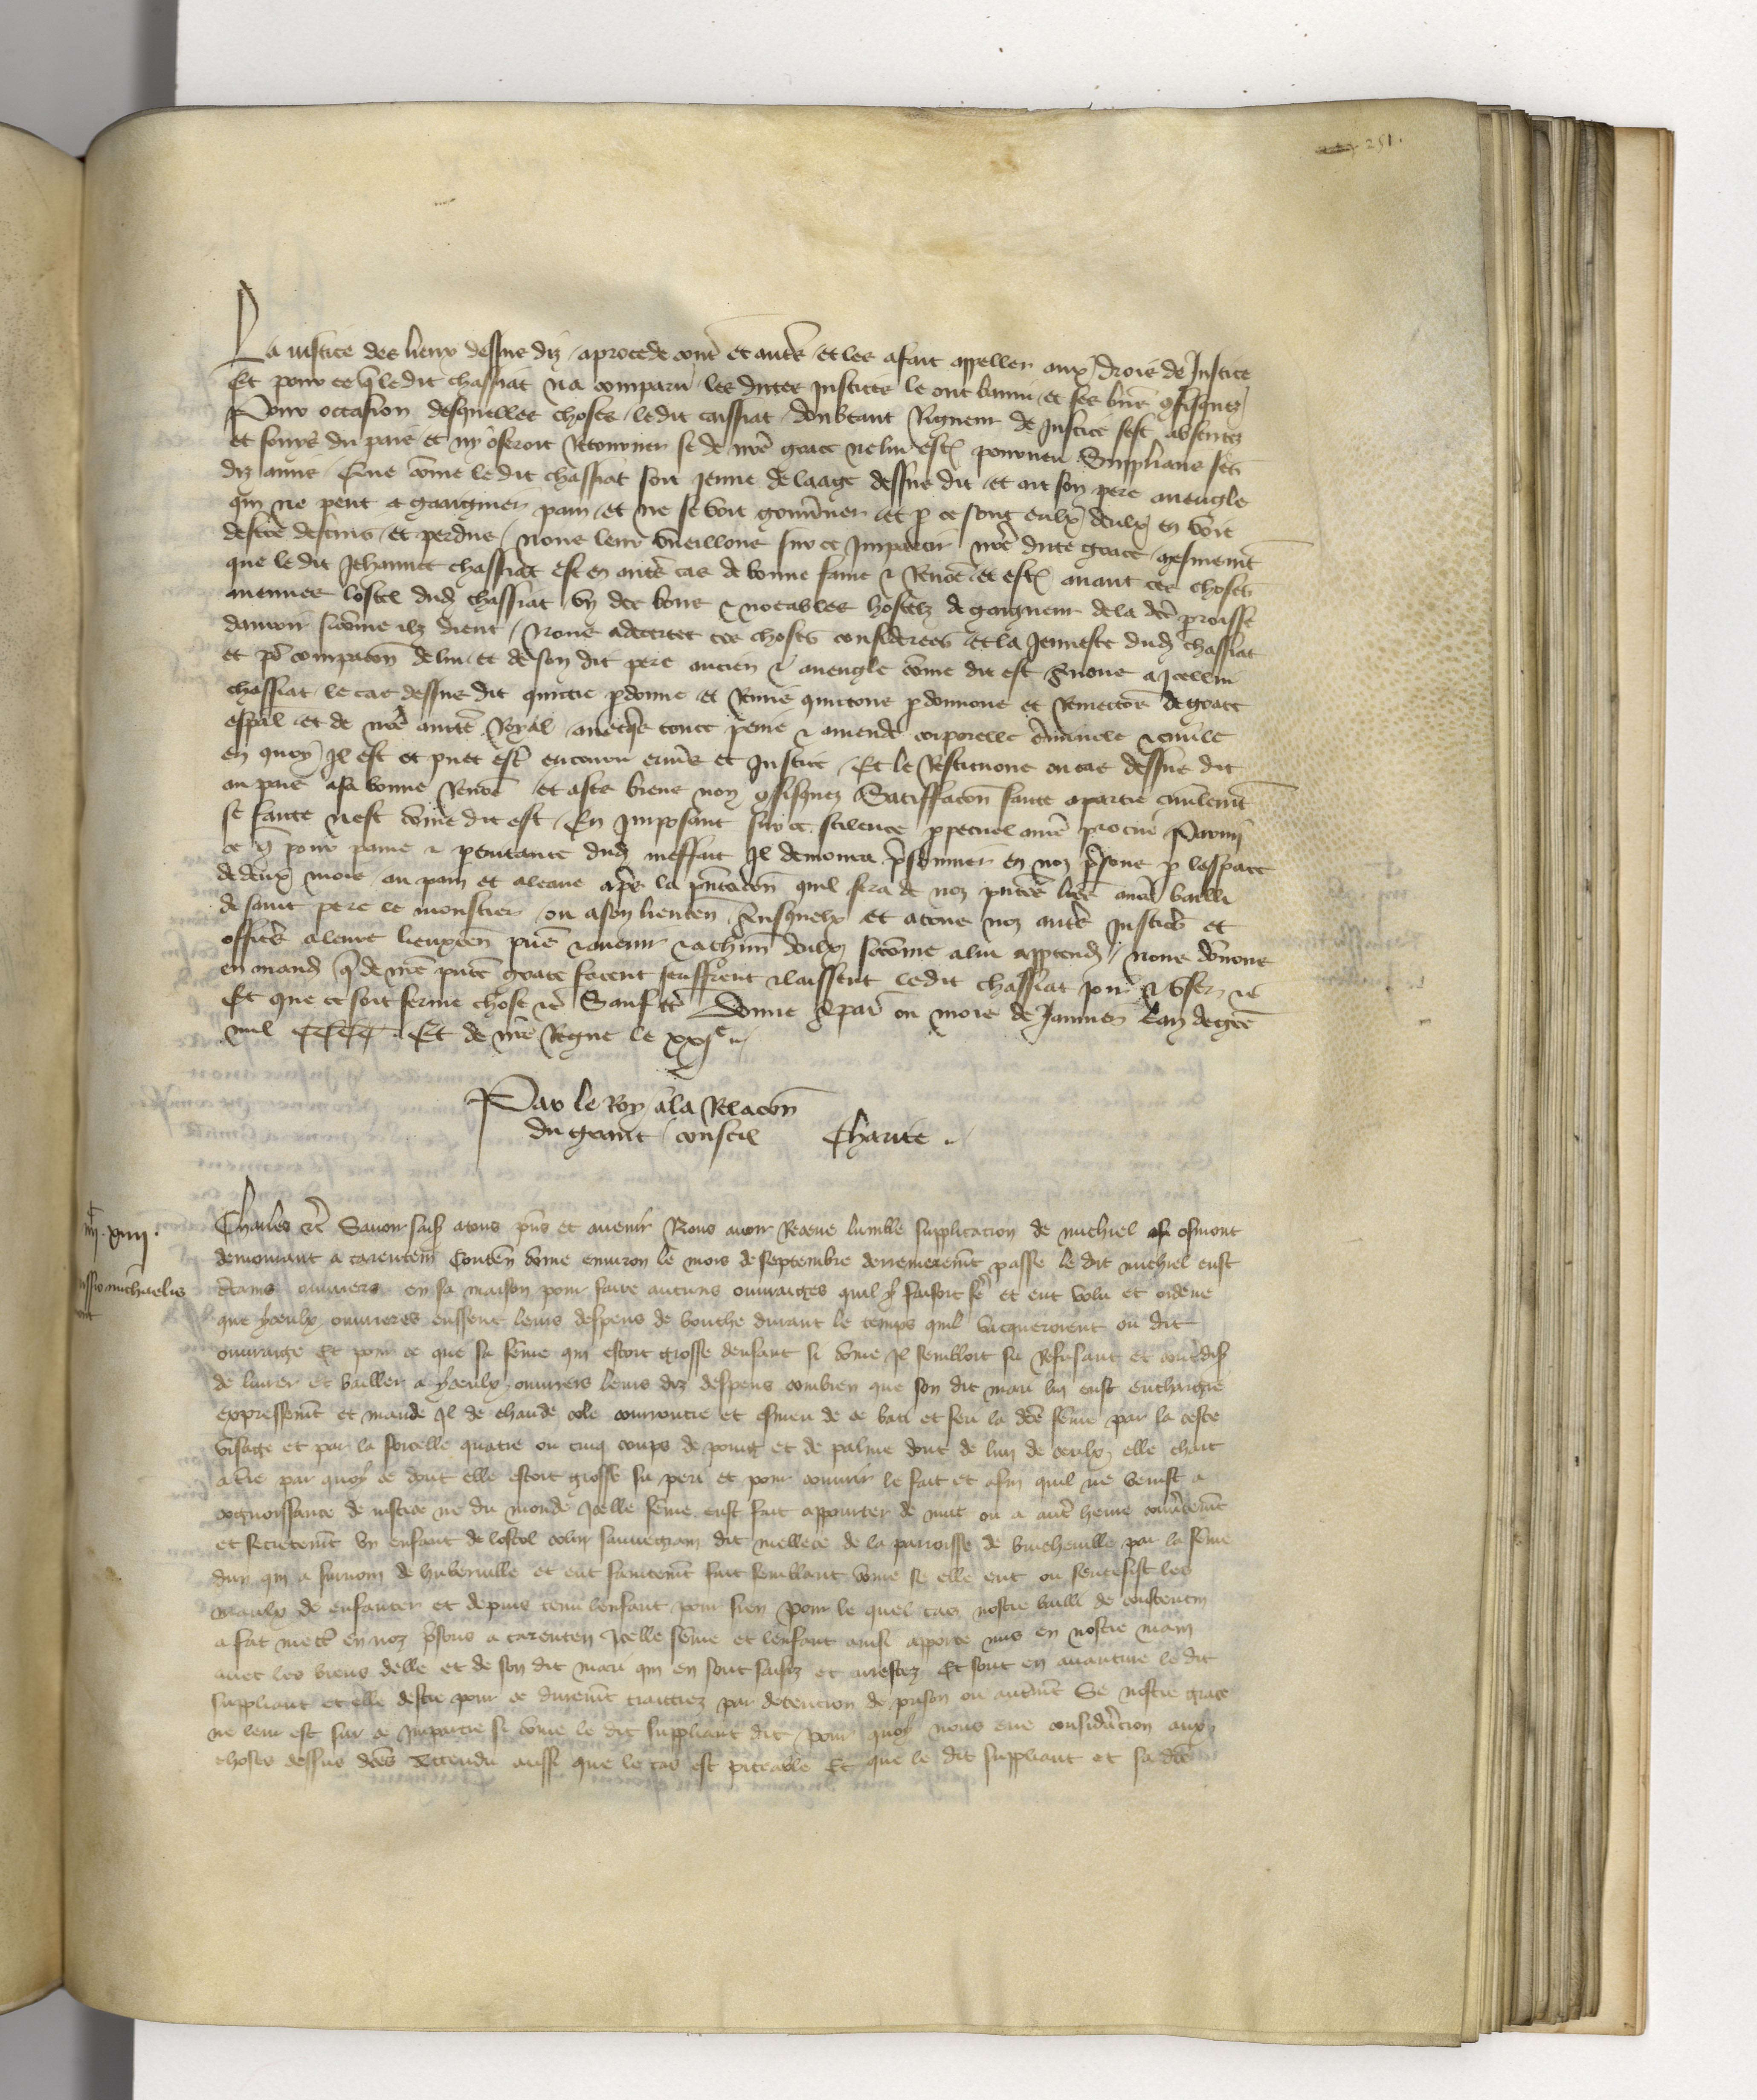 251.
La iustice des lieux dessus diz a procede contre et autres et les a fait appeller aux drois de Justice
Et pour ce que ledit chassiat na comparu les dictes justices le ont banni et ses biens confisquez
Pour occasion desquelles choses ledit caissiat doubtant Rigueur de Justice sest absentez
et du pais et ny oseroit Retourner se de nre grace ne lui est pourveu Supplians ses
diz amis Que come le dit chassiat soit jeune de laage dessus dit et ait son pere aveugle
qui ne peut a gaaignier pain et ne se voit gouverner et par ce sont eulx deulx en voie
destre destruis et perdus nous leur vueillons sur ce Impartir nre dicte grace mesmemt
que le dit Jehannet chassiat est en autres cas de bonne fame et Renomee et estoit avant ces choses
avenues lostel dud chassiat un des bons et notables hostelz de gaigneur de la dce proisse
damoir sicome ilz dient Nous adcertes ces choses considerees et la Jennesce dud chassiat
et pour compacon de lui et de son dit pere ancien et aveugle come dit est Avons a Icellui
chassiat le cas dessus dit quictie pdonne et Remis quictons pdonnons et Remectons de grace
espal et de nre aucte Royal avecques toute peine et amende corporelle criminele et civile
en quoy Il est et puet estre encouru envers et Justice Et le Restituons ou cas dessus dit
au pais a sa bonne Renomee et a ses biens non confisquez Satisfacon faicte a partie civilemt
se faicte nest come dit est En Imposant sur ce silence ppetuel a nre procur Parmi
ce que pour paine et penitance dud meffait Il demoura prisonnier en noz prisons par lespace
de deux mois au pain et a leaue apres la presentacon quil fera de noz pntes lres au bailli
de saint pere le monstier ou a son lieuten Ausquelx et a tous noz autres Justiciers et
officiers a leurs lieuxten pns et avenir et a chun deulx sicome a lui apptend nous donnons
en mand que de nre pnte grace facent seuffrent et laissent ledit chassiat joir et user etc
Et que ce soit ferme chose etc Sauf etc Donne a paris ou mois de Janvier Lan de grace
mil CCCC Et de nre Regne le xxje
Par le Roy a la Relacon
du grant conseil Charite
iiij xiiij.
Charles etc Savoir faisons a tous pns et avenir Nous avoir Receue lumble supplicacion de michiel osmont
demourant a carenten Conten come environ le mois de septembre derrenierement passe le dit michiel eust
missio michaelis
certains ouvriers en sa maison pour faire aucuns ouvraiges quil y faisoit fere et eut volu et ordene
que yceulx ouvriers eussent leurs despens de bouche durant le temps quil vacqueroient ou dit
ouvraige Et pour ce que sa feme qui estoit grosse denfant si come Il sembloit fu Refusant et contredis
de livrer et bailler a yceulx ouvriers leurs diz despens combien que son dit mari luy eust enchargie
expressemt et mande Il de chaude cole courroucie et esmeu de ce bati et feri la dce feme par la teste
visage et par la forcelle quatre ou cinq coups de poing et de palme dont de lun de ceulx elle chait
a tre par quoy ce dont elle estoit grosse fu peri et pour couvrir le fait et afin quil ne venist a
cognoissance de justice ne du monde Icelle feme eust fait appourter de nuit ou a autre heure couvertemt
et secretemt un enfant de lostel colin sauvegrain dit mellece de la parroisse de par la feme
dun qui a surnom de huberville et eut faintemt fait semblant come se elle eut ou sentesist les
maulx de enfanter et depuis tenu lenfant pour sien Pour le quel cas nostre bailli de costentin
a fait mectre en noz prisons a carenten Icelle feme et lenfant ainsi apporte mis en nostre main
avec les biens delle et de son dit mari qui en sont saisiz et arrestez Et sont en avanture le dit
suppliant et elle destre pour ce durement traictiez par detencion de prison ou autremt Se nostre grace
ne leur est sur ce Impartie si come le dit suppliant dit Pour quoy nous eue consideracion aux
choses dessus dces Attendu aussi que le cas est piteable Et que le dit suppliant et sa dce